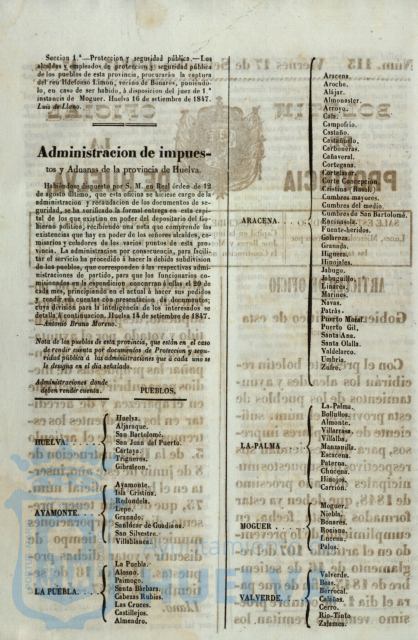 Seccion 1.ª—Proteccion y seguridad pública.—Los
alcaldes y empleados de proteccion y seguridad pública
de los pueblos de esta provincia, procurarán la captura
del reo Ildefonso Limon, vecino de Bonares, poniendo-
lo, en caso de ser habido, á disposicion del juez de 1.ª
instancia de Moguer. Huelva 16 de setiembre de 1847.
Luis de Llano.
Administracion de impues-
tos y Aduanas de la provincia de Huelva.
Habiéndose dispuesto por S. M. en Real órden de 12
de agosto último, que esta oficina se hiciese cargo de la
administracion y recaudacion de los documentos de se-
guridad, se ha verificado la formal entrega en esta capi-
tal de los que existian en poder del depositario del Go-
bierno político, recibiendo una nota que comprende las
existencias que hay en poder de los señores alcaldes, co-
misarios y celadores de los varios puntos de esta pro-
vincia. La administracion por consecuencia, para facili-
tar el servicio ha procedido á hacer la debida subdivision
de los pueblos, que corresponden á las respectivas admi-
nistraciones de partido, para que los funcionarios co-
misionados en la espendicion concurran á ellas el 29 de
cada mes, principiando en el actual á hacer sus pedidos
y rendir sus cuentas con presentacion de documentos;
cuya division para la inteligencia de los interesados se
detalla á continuacion. Huelva 14 de setiembre de 1847.
—Antonio Bruno Moreno.
Nota de los pueblos de esta provincia, que están en el caso
de rendir cuenta por documentos de Proteccion y segu-
ridad pública á las administraciones que á cada uno se
le designa en el dia señalado.
Administraciones donde
deben rendir cuenta. PUEBLOS.
HUELVA. . . .
Huelva.
Aljaraque.
San Bartolomé.
San Juan del Puerto.
Cartaya.
Trigueros.
Gibraleon.
AYAMONTE. . .
Ayamonte.
Isla Cristina.
Redondela.
Lepe.
Granado.
Sanlúcar de Guadiana.
San Silvestre.
Villablanca.
LA PUEBLA. . .
La Puebla.
Alosno.
Paimogo.
Santa Bárbara.
Cabezas Rubias.
Las Cruces.
Castillejos.
Almendro.
ARACENA. . . .
Aracena.
Aroche.
Alajar.
Almonaster.
Arroyo.
Cala.
Campofrio.
Castaño.
Castañuelo.
Corboneras.
Cañaveral.
Cortegana.
Cortelazor.
Corte Concepcion.
Cumbres mayores.
Cumbres del medio.
Cumbres de San Bartolomé.
Encinasola.
Fuente-heridos.
Galaroza.
Granada.
Higuera.
Hinojales.
Jabugo.
Jabuguillo.
Linares.
Marines.
Navas.
Patrás.
Puerto Moral.
Puerto Gil.
Santa Ana.
Santa Olalla.
Valdelarco.
Umbria.
Zufre.
LA-PALMA. . . .
La-Palma.
Bollullos.
Almonte.
Villarrasa.
Villalba.
Manzanilla.
Escacena.
Paterna.
Chucena.
Hinojos.
Carrion.
MOGUER . . . .
Moguer.
Niebla.
Bonares.
Rociana.
Lucena.
Palos.
VALVERDE. . .
Valverde.
Beas.
Berrocal.
Calañas.
Cerro.
Rio-Tinto
Zalamea.